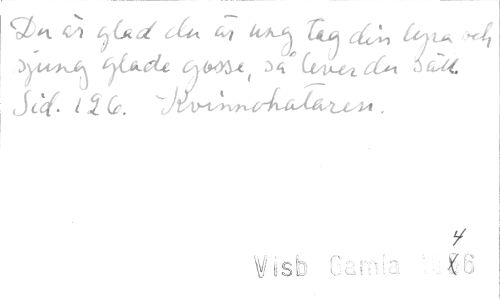 Du är glad du är ung tag din lyra och
sjung glade gosse, så lever du sält.
Sid. 126. Kvinnohataren.
4
Visb Gamla 6